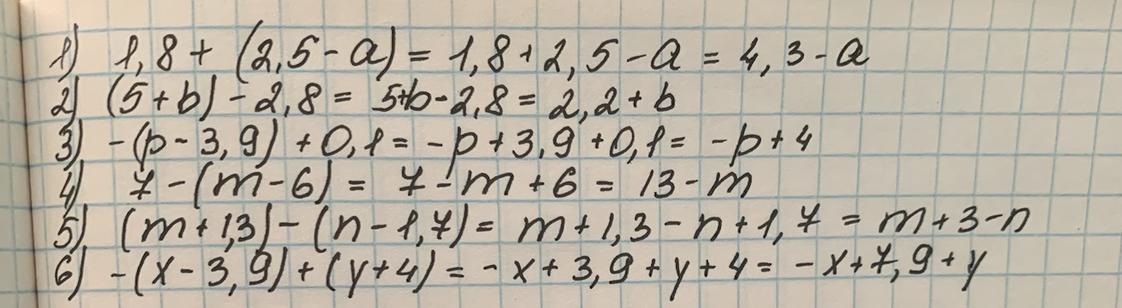 1) 1,8 + (2,5 - a) = 1,8 + 2,5 - a = 4,3 - a
2) (5 + b) - 2,8 = 5 + b - 2,8 = 2,2 + b
3) -(p - 3,9) + 0,1 = -p + 3,9 + 0,1 = -p + 4
4) 7 - (m - 6) = 7 - m + 6 = 13 - m
5) (m + 1,3) - (n - 1,7) = m + 1,3 - n + 1,7 = m + 3 - n
6) -(x - 3,9) + (y + 4) = -x + 3,9 + y + 4 = -x + 7,9 + y